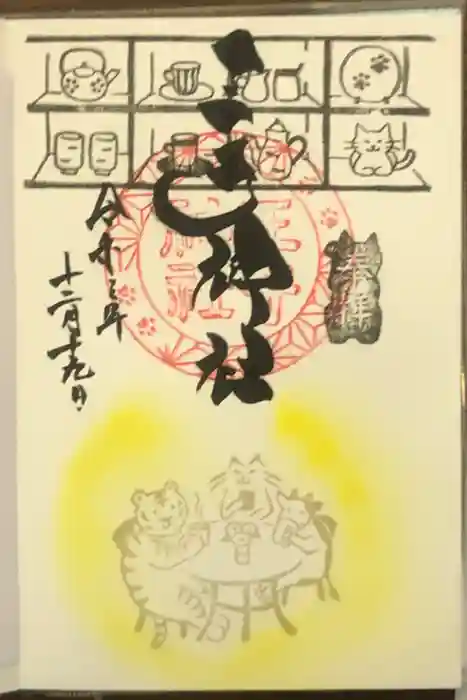 奉拝
王子神社
令和三年
十二月十九日